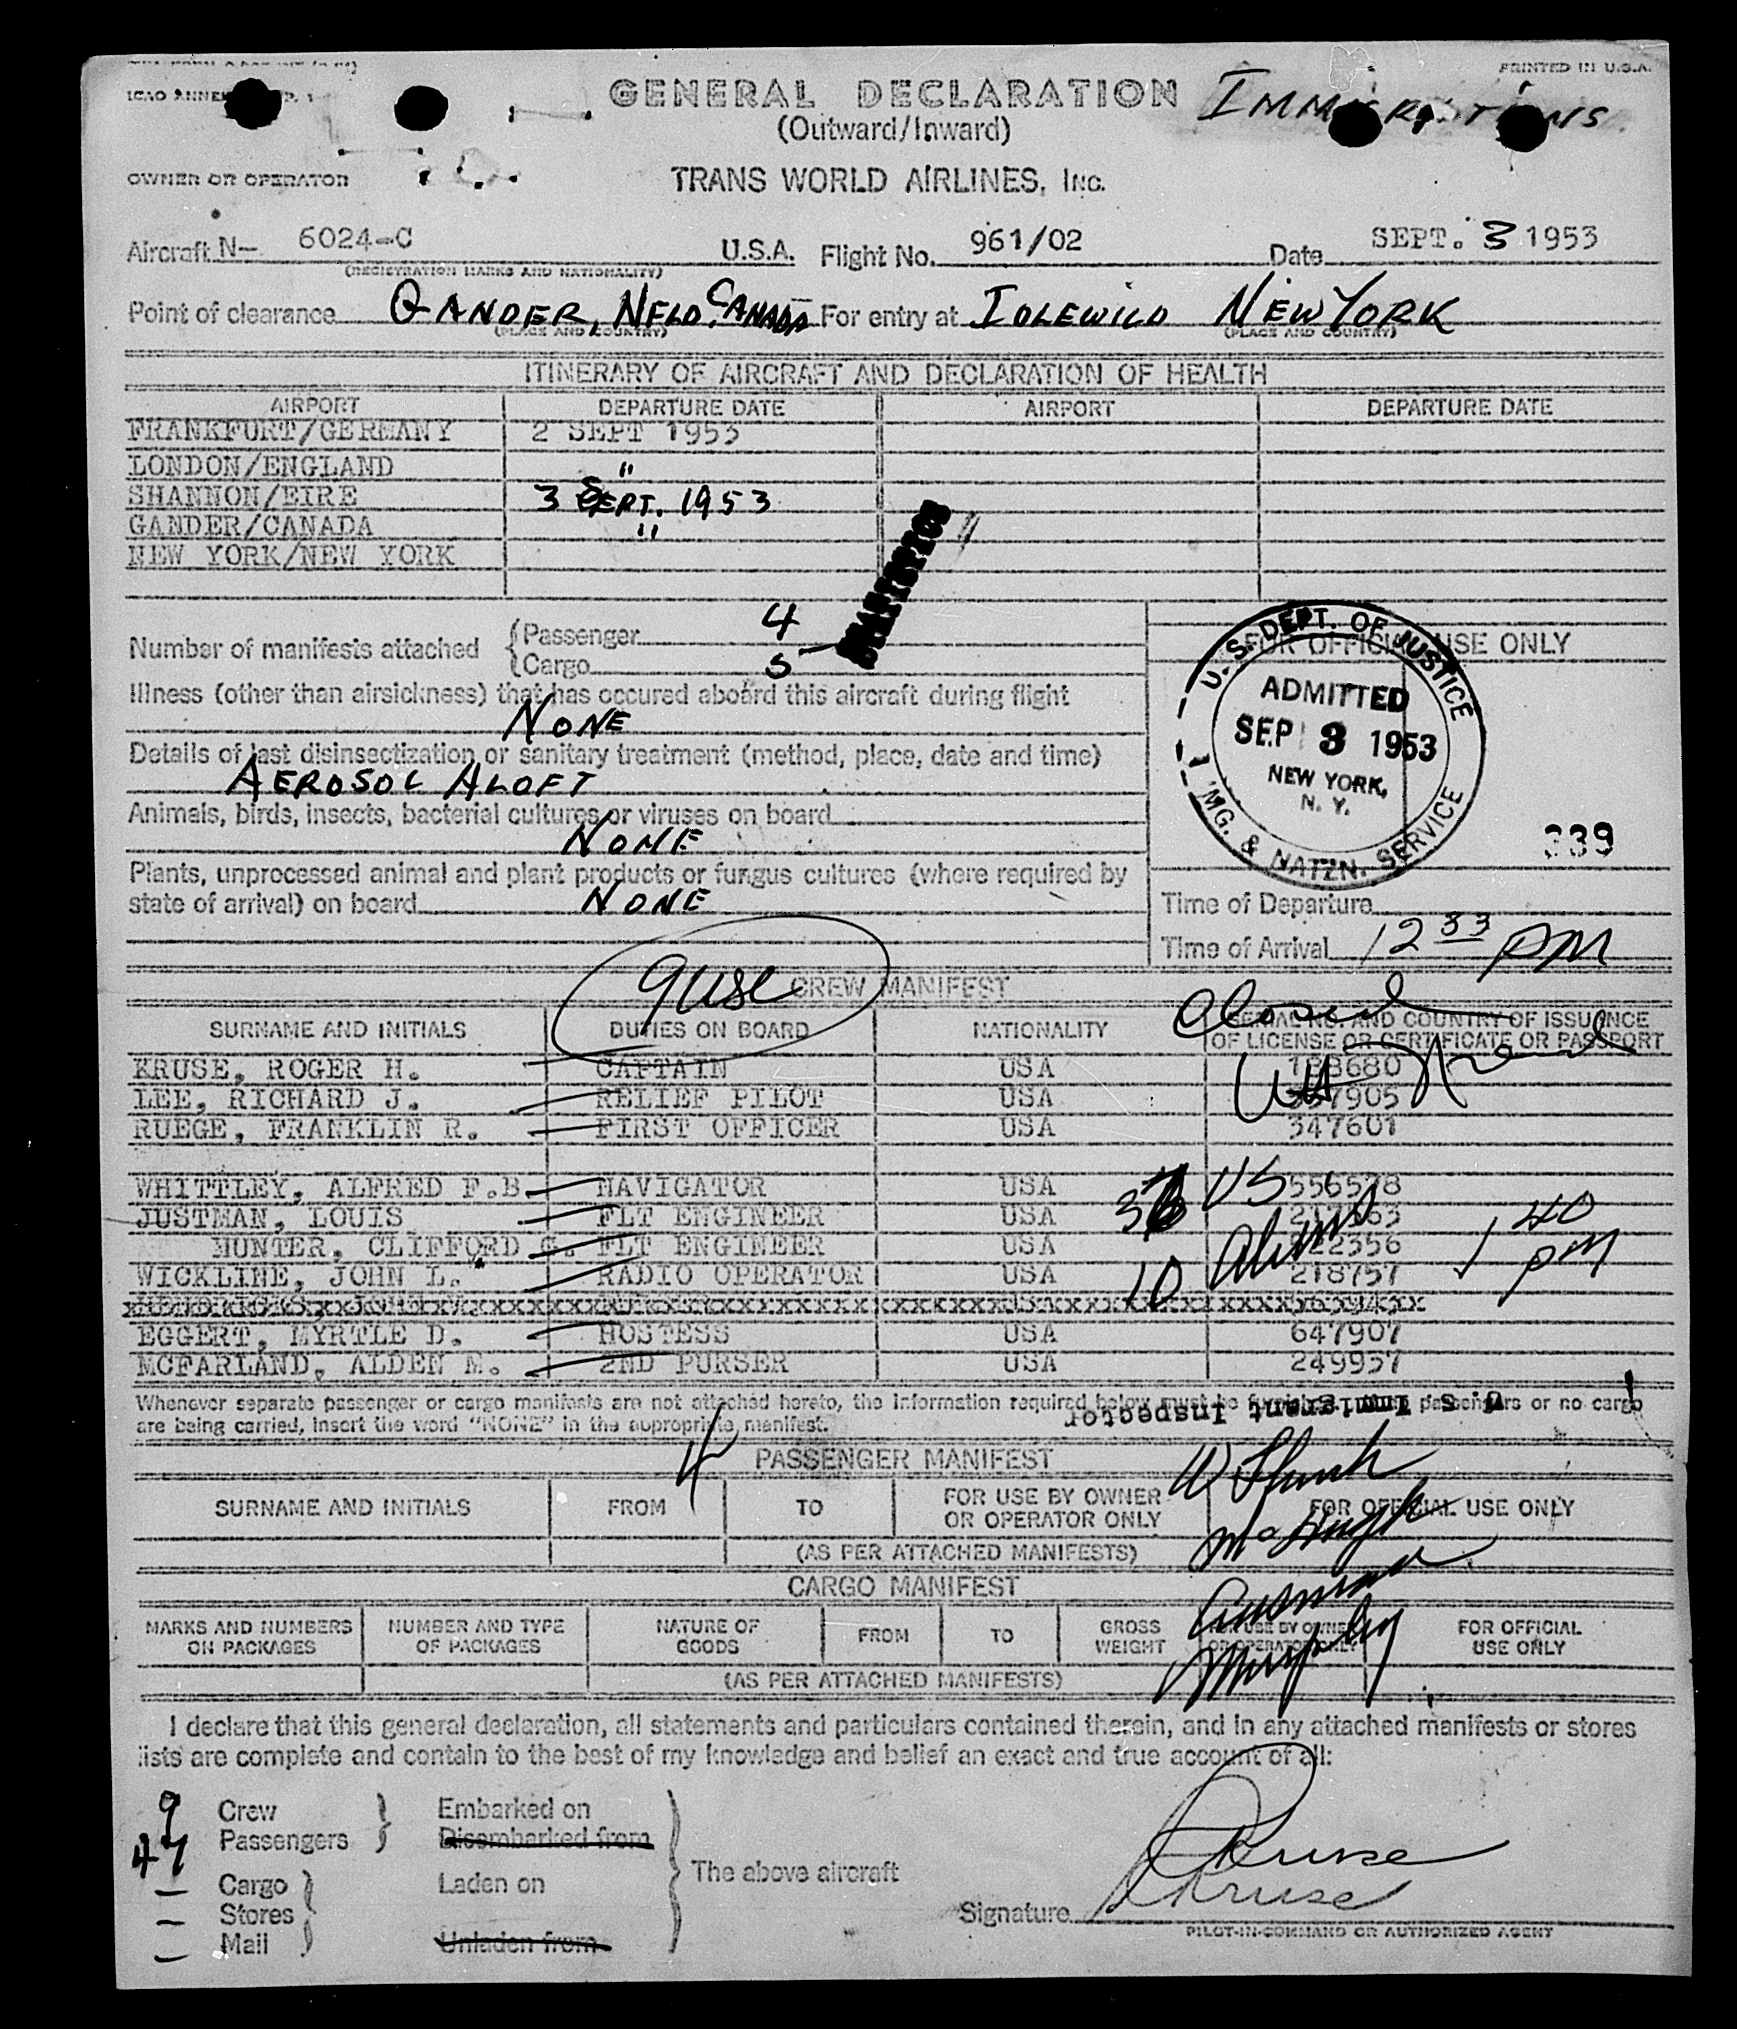 PRINTED IN U.S.A.
ICAO ANNEX
GENERAL DECLARATION
IMMIGRATIONS
(Outward/Inward)
OWNER OR OPERATOR
TRANS WORLD AIRLINES, INC.
Aircraft N- 6024-C U.S.A. Flight No. 961/02 Date SEPT. 3 1953
(REGISTRATION MARKS AND NATIONALITY)
Point of clearance GANDER, NFLD. CANADA For entry at IDLEWILD NEW YORK
(PLACE AND COUNTRY) (PLACE AND COUNTRY)
ITINERARY OF AIRCRAFT AND DECLARATION OF HEALTH
AIRPORT DEPARTURE DATE AIRPORT DEPARTURE DATE
FRANKFURT/GERMANY 2 SEPT 1953
LONDON/ENGLAND "
SHANNON/EIRE 3 SEPT. 1953
GANDER/CANADA "
NEW YORK/NEW YORK
Number of manifests attached
Passenger 4
Cargo 5
FOR OFFICIAL USE ONLY
U.S. DEPT. OF JUSTICE
ADMITTED
SEP 3 1953
NEW YORK,
N. Y.
IMG. & NATZN. SERVICE
339
Illness (other than airsickness) that has occured aboard this aircraft during flight
NONE
Details of last disinsectization or sanitary treatment (method, place, date and time)
AEROSOL ALOFT
Animals, birds, insects, bacterial cultures or viruses on board
NONE
Plants, unprocessed animal and plant products or fungus cultures (where required by
state of arrival) on board NONE
Time of Departure
Time of Arrival 12 33 PM
9 USC
CREW MANIFEST
Closed
SURNAME AND INITIALS DUTIES ON BOARD NATIONALITY SERIAL NO. AND COUNTRY OF ISSUANCE
OF LICENSE OR CERTIFICATE OR PASSPORT
KRUSE, ROGER H. CAPTAIN USA
LEE, RICHARD J. RELIEF PILOT USA
RUEGE, FRANKLIN R. FIRST OFFICER USA 347601
WHITTLEY, ALFRED F.B. NAVIGATOR USA 556578
JUSTMAN, LOUIS FLT ENGINEER USA
HUNTER, CLIFFORD G. FLT ENGINEER USA
WICKLINE, JOHN L. RADIO OPERATOR USA 218757
37 US
10 Aliens
1 40 PM
EGGERT, MYRTLE D. HOSTESS USA 647907
MCFARLAND, ALDEN M. 2ND PURSER USA 249957
Whenever separate passenger or cargo manifests are not attached hereto, the information required below must be furnished. If no passengers or no cargo
are being carried, insert the word "NONE" in the appropriate manifest.
U.S. Immigrant Inspector
4
PASSENGER MANIFEST
SURNAME AND INITIALS FROM TO FOR USE BY OWNER
OR OPERATOR ONLY FOR OFFICIAL USE ONLY
(AS PER ATTACHED MANIFESTS)
CARGO MANIFEST
Murphy
MARKS AND NUMBERS
ON PACKAGES NUMBER AND TYPE
OF PACKAGES NATURE OF
GOODS FROM TO GROSS
WEIGHT FOR USE BY OWNER
OR OPERATOR ONLY FOR OFFICIAL
USE ONLY
(AS PER ATTACHED MANIFESTS)
I declare that this general declaration, all statements and particulars contained therein, and in any attached manifests or stores
lists are complete and contain to the best of my knowledge and belief an exact and true account of all:
9 Crew Embarked on
47 Passengers Disembarked from
The above aircraft
– Cargo Laden on
– Stores
– Mail Unladen from
RKruse
RKruse
Signature
PILOT-IN-COMMAND OR AUTHORIZED AGENT